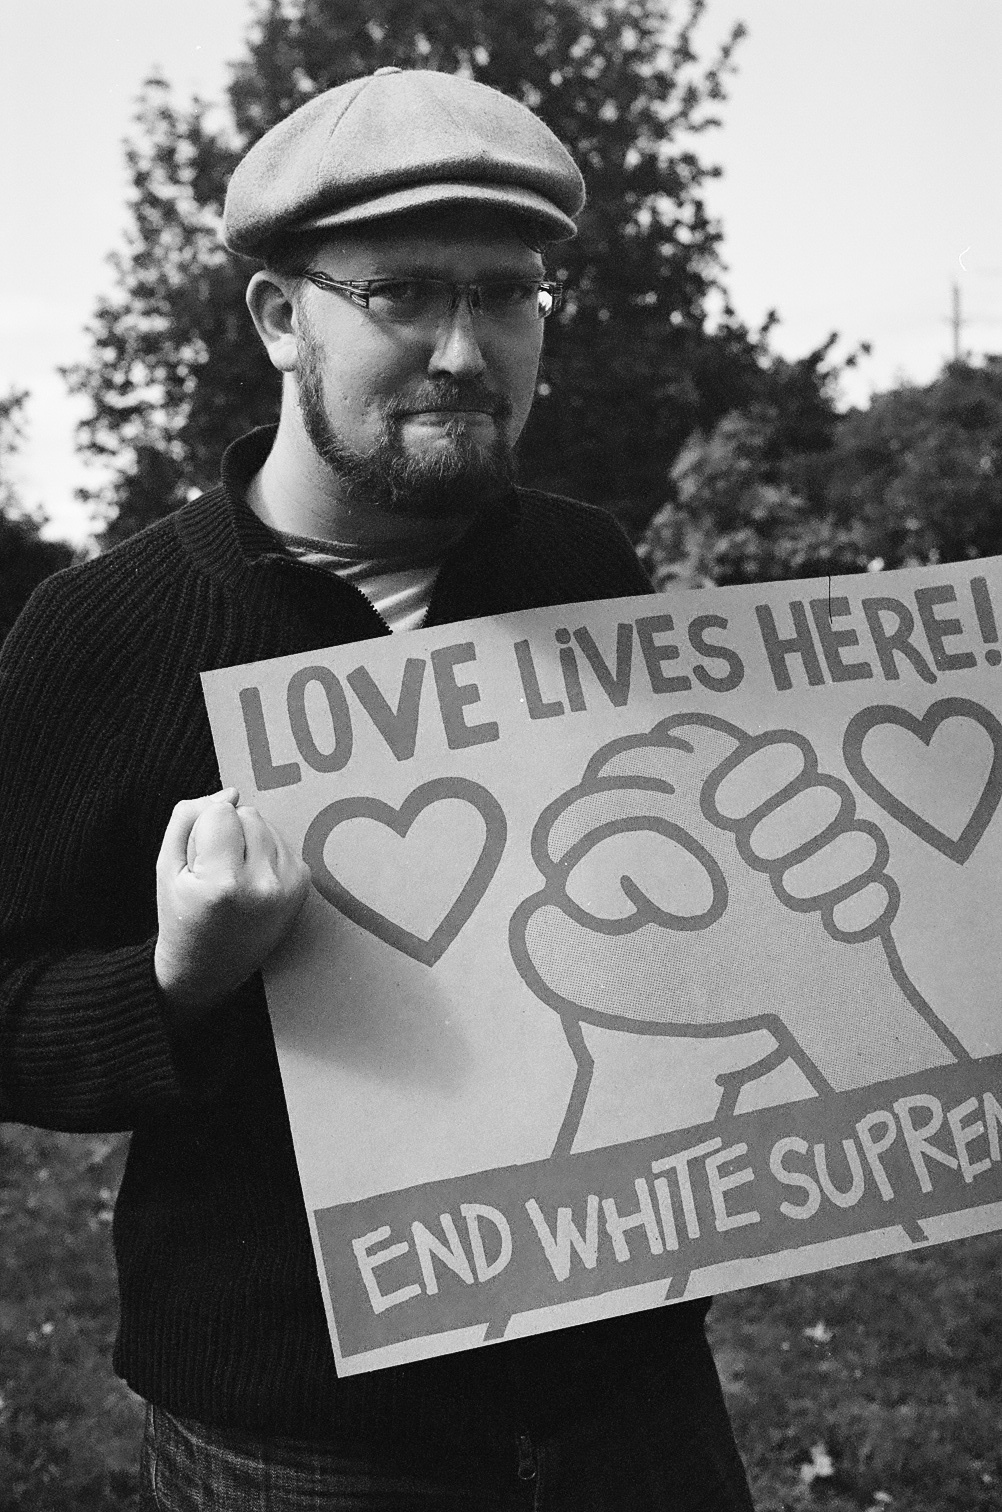 LOVE LiVES HERE!
END WHiTE SUPREM